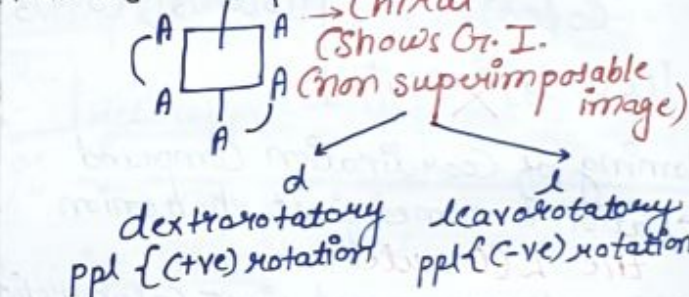 A A → Chiral
(Shows G.I.
A A (non superimposable
image)
A
d l
dextrorotatory leavorotatory
ppl {(+ve) rotation ppl {(-ve) rotation